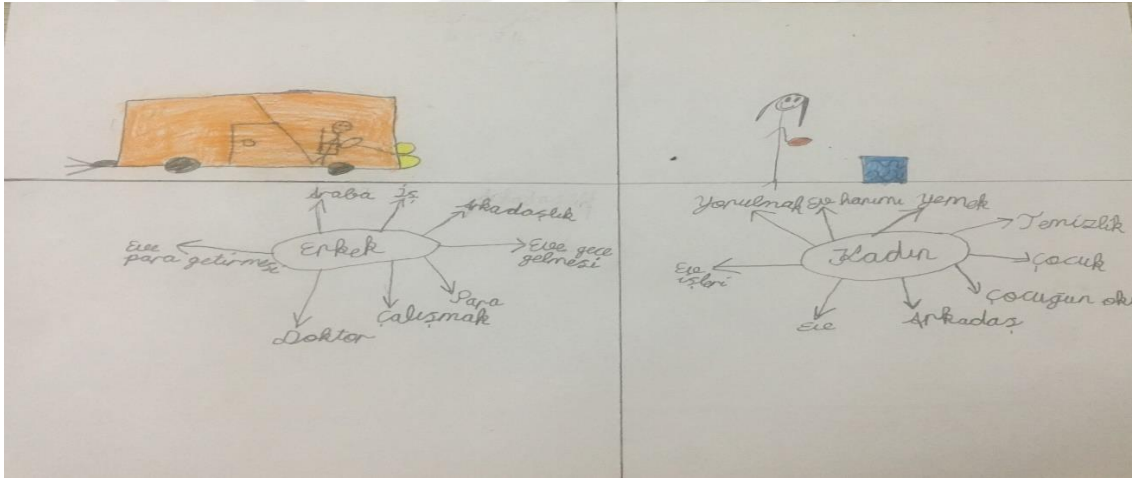 Araba
İş
Arkadaşlık
Erkek
Eve
para getirmesi
Eve geç
gelmesi
Para
Çalışmak
Doktor
Yorulmak
Ev hanımı
Yemek
Temizlik
Kadın
Çocuk
Ev
işleri
Çocuğun ok
Arkadaş
Ev